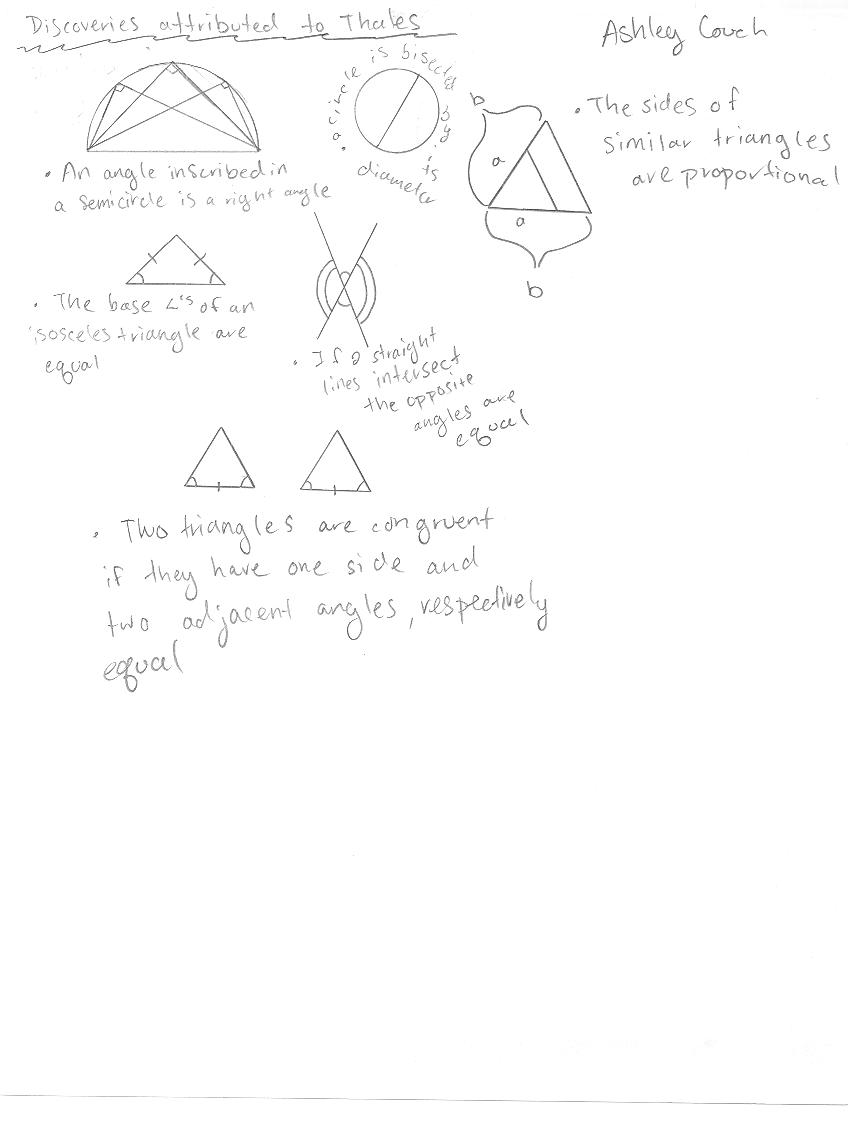 Discoveries attributed to Thales
Ashley Couch
• An angle inscribed in
a semicircle is a right angle
• a circle is bisected by its
diameter
b
a
a
b
• The sides of
similar triangles
are proportional
• The base ∠'s of an
isosceles triangle are
equal
• If 2 straight
lines intersect
the opposite
angles are
equal
• Two triangles are congruent
if they have one side and
two adjacent angles, respectively
equal